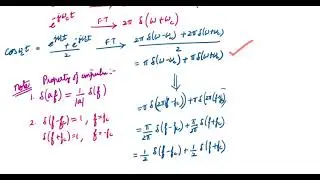 e^{-jω_c t} —F.T→ 2π δ(ω+ω_c)
cosω_c t = \frac{e^{jω_c t} + e^{-jω_c t}}{2} —F.T→ \frac{2π δ(ω-ω_c) + 2π δ(ω+ω_c)}{2}
= π δ(ω-ω_c) + π δ(ω+ω_c) ✓
Note: Property of impulse :-
1. δ(af) = \frac{1}{|a|} δ(f)
2. δ(f-f_c) = 1, f=f_c
δ(f+f_c) = 1, f=-f_c
= π δ(2π(f-f_c)) + π δ(2π(f+f_c))
= \frac{π}{2π} δ(f-f_c) + \frac{π}{2π} δ(f+f_c)
= \frac{1}{2} δ(f-f_c) + \frac{1}{2} δ(f+f_c)